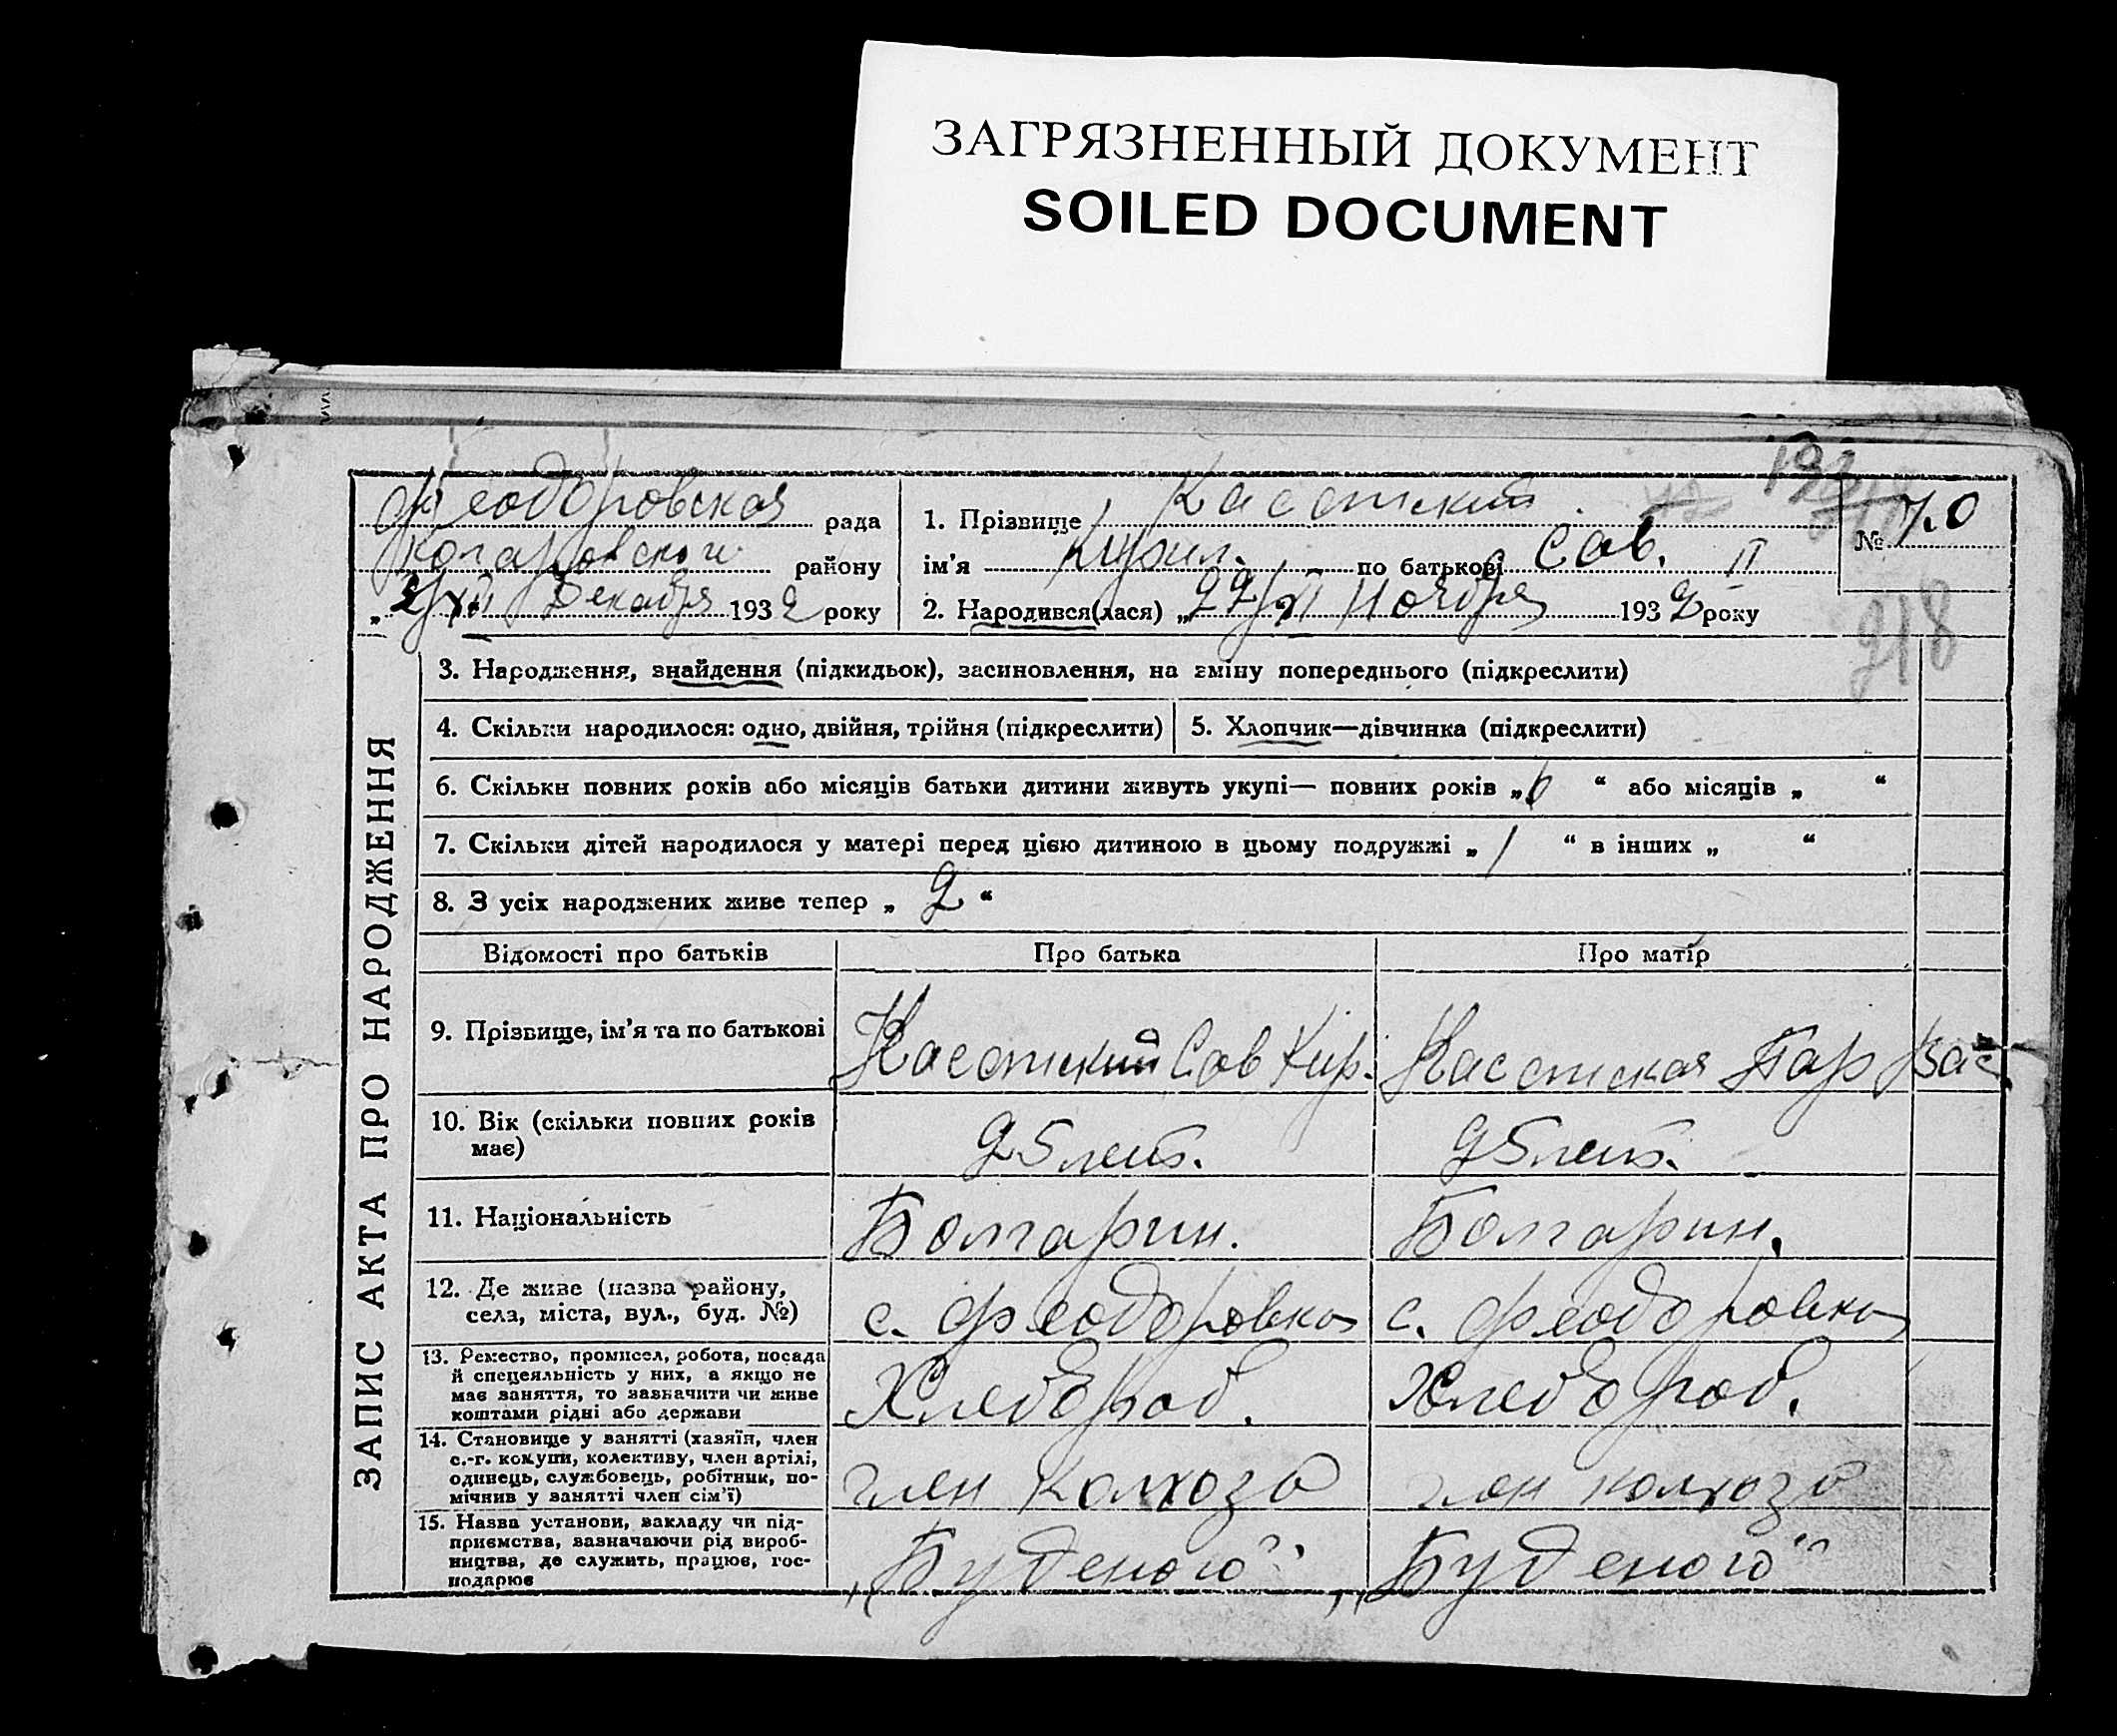 ЗАГРЯЗНЕННЫЙ ДОКУМЕНТ
SOILED DOCUMENT
Феодоровская рада
району
Декабря 1932 року
1. Прізвище Касстский
ім’я Кирил. по батькові Сав. II
2. Народився(лася) „22/XI Ноября 1932 року
№ 70
218
ЗАПИС АКТА ПРО НАРОДЖЕННЯ
3. Народження, знайдення (підкидьок), засиновлення, на зміну попереднього (підкреслити)
4. Скільки народилося: одно, двійня, трійня (підкреслити)
5. Хлопчик—дівчинка (підкреслити)
6. Скільки повних років або місяців батьки дитини живуть укупі— повних років „ “ або місяців „ “
7. Скільки дітей народилося у матері перед цією дитиною в цьому подружжі „ 1 “ в інших „ “
8. З усіх народжених живе тепер „ 2 “
Відомості про батьків Про батька Про матір
9. Прізвище, ім’я та по батькові
Касстский Сав Кир.
Касстская Пар Вас
10. Вік (скільки повних років
має)
25 лет.
25 лет.
11. Національність
Болгарин.
Болгарин.
12. Де живе (назва району,
села, міста, вул., буд. №)
с. Феодоровка
с. Феодоровка
13. Ремество, промисел, робота, посада
й спецеяльність у них, а якщо не
має заняття, то зазначити чи живе
коштами рідні або держави
Хлебороб.
Хлебороб.
14. Становище у занятті (хазяїн, член
с.-г. комуни, колективу, член артілі,
одинець, службовець, робітник, по-
мічнив у занятті член сім’ї)
член колхоза
член колхоза
15. Назва установи, закладу чи під-
приємства, зазначаючи рід вироб-
ництва, де служить, працює, гос-
подарює
„Буденого“
„Буденого“